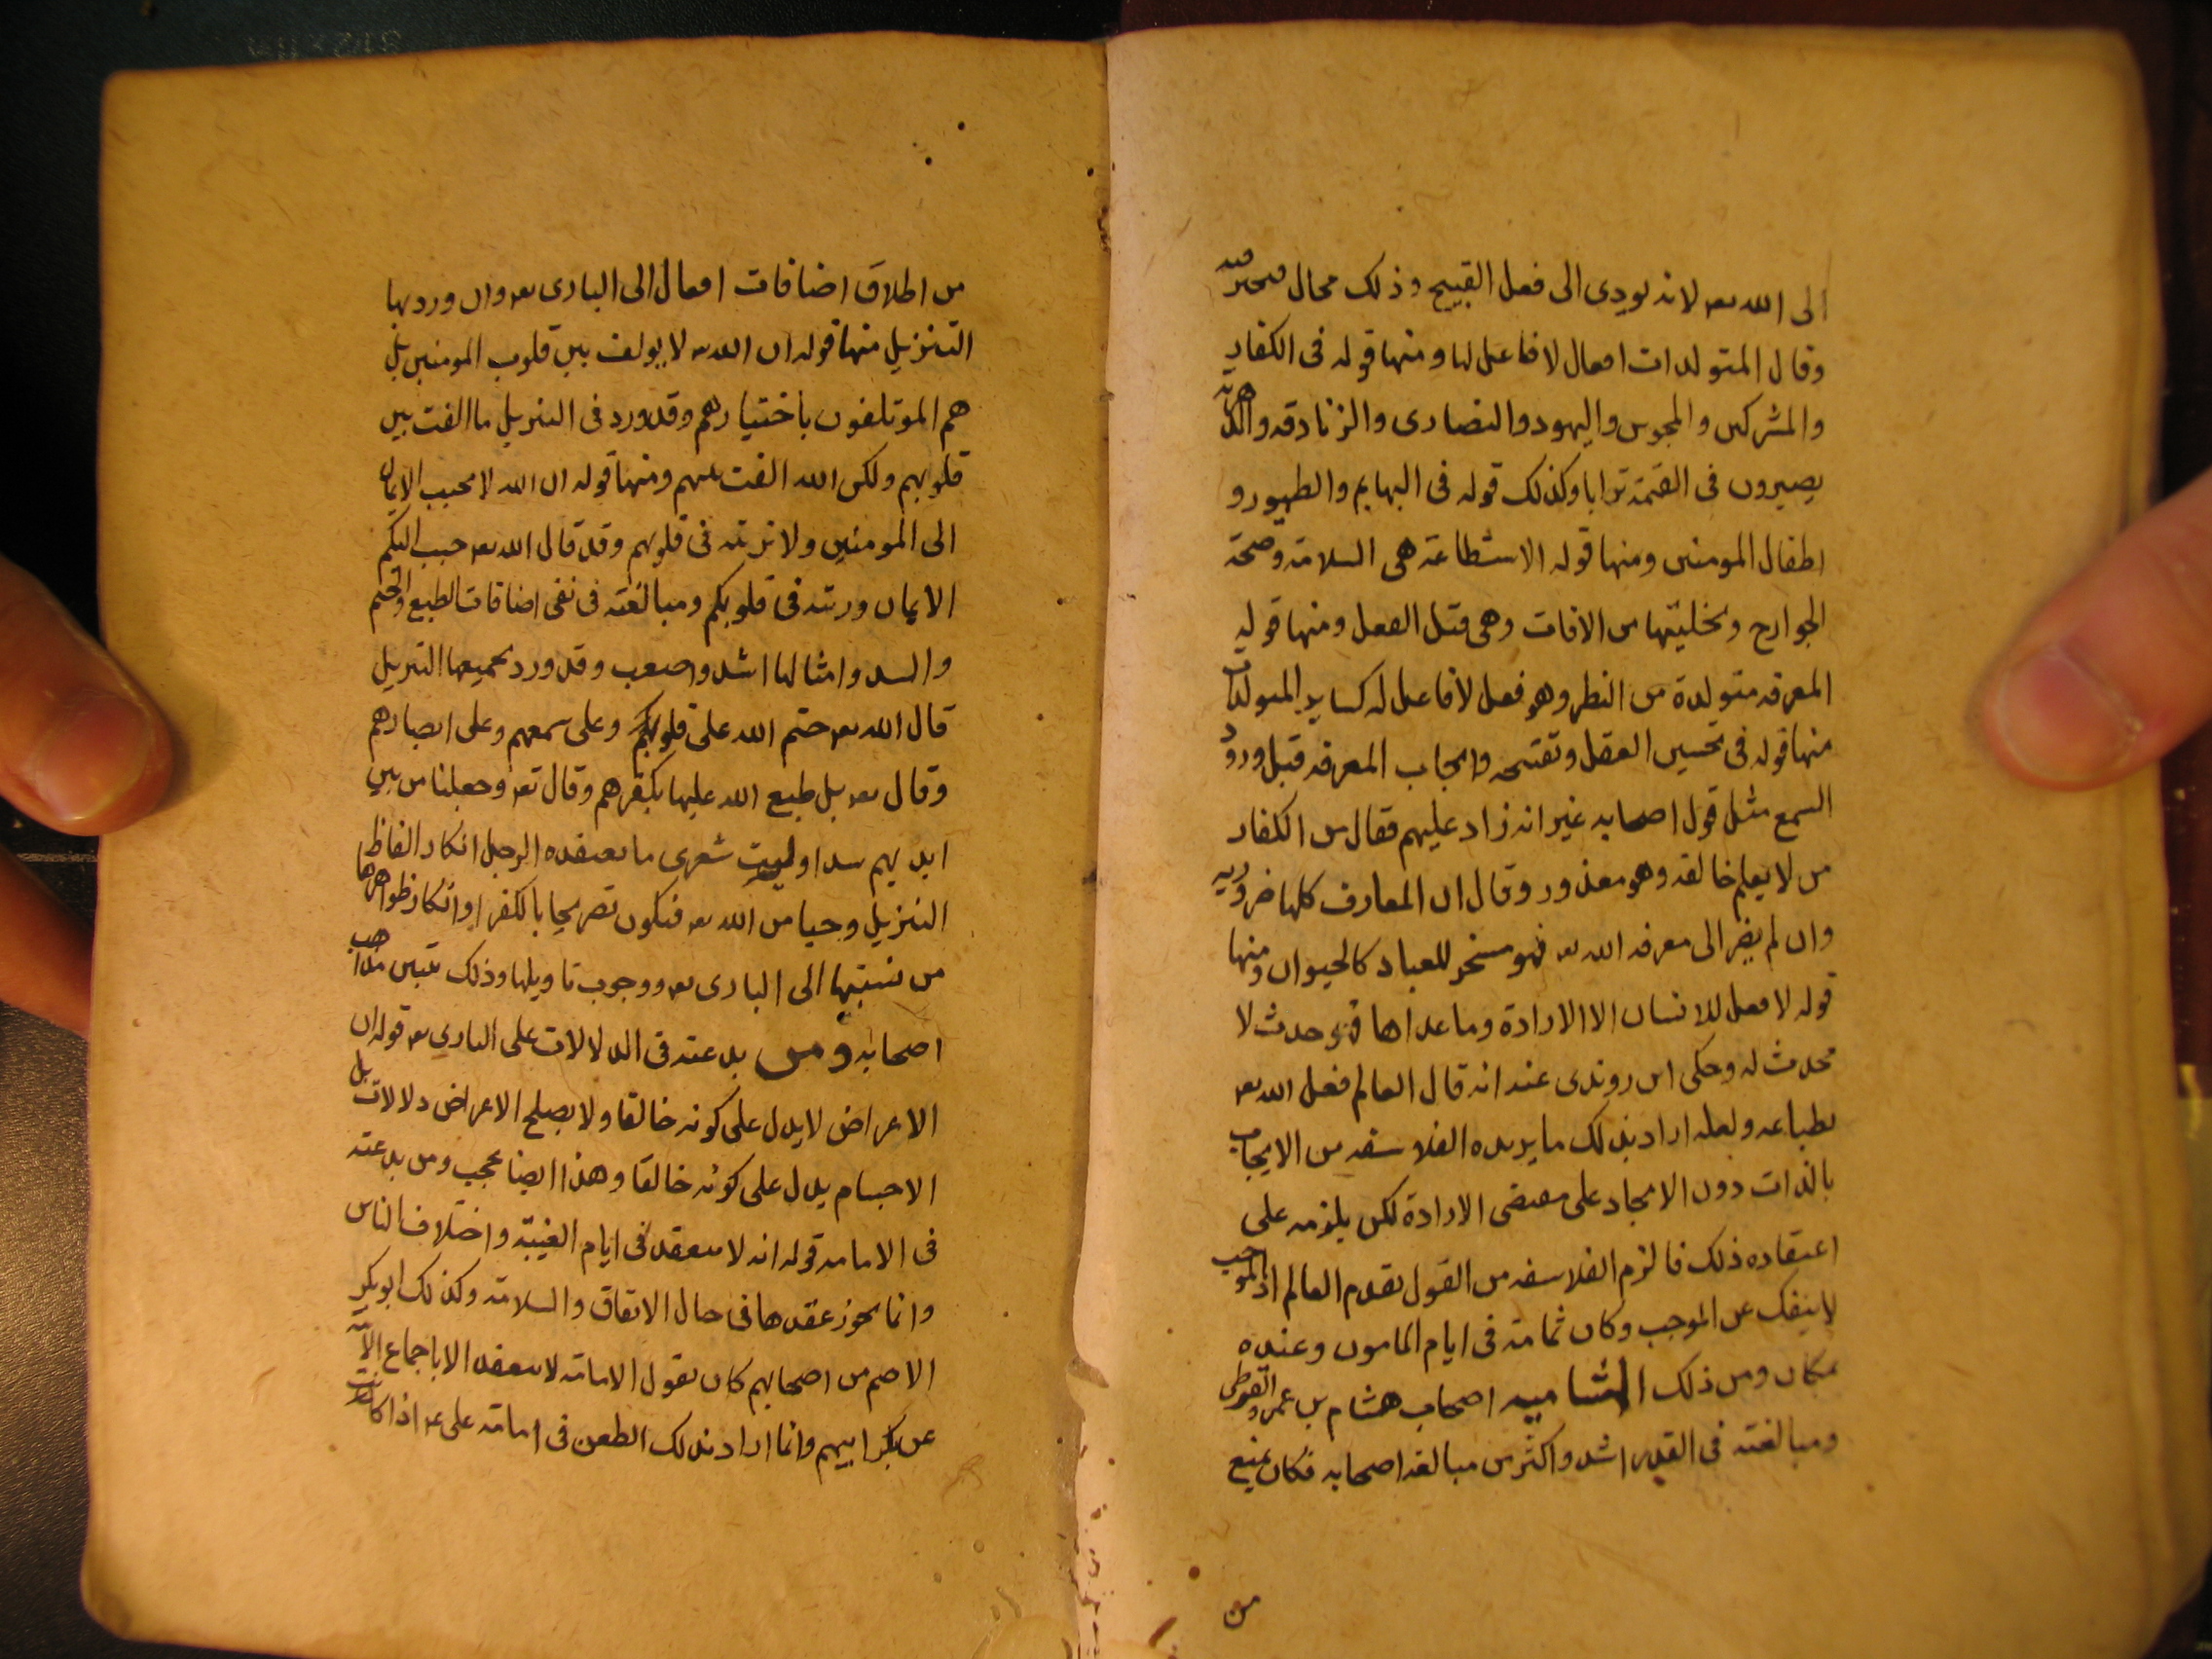 الى الله تعه لانه يودى الى فعل القبيح وذلك محال فتحير فيه
وقال المتولدات افعال لا فاعل لها ومنها قوله فى الكفار
والمشركين والمجوس واليهود والنصارى والزنادقه والدهرية
يصيرون فى القيمة ترابا وكذلك قوله فى البهايم والطيور و
اطفال المومنين ومنها قوله الاستطاعة هى السلامة وصحة
الجوارح وتخليتها من الافات وهى قبل الفعل ومنها قوله
المعرفه متولدة من النظر وهو فعل لا فاعل له كساير المتولدات
منها قوله فى تحسين العقل وتقبيحه وايجاب المعرفه قبل ورود
السمع مثل قول اصحابه غير انه زاد عليهم فقال من الكفار
من لا يعلم خالقه وهو معذور وقال ان المعارف كلها ضروريه
وان لم يضر الى معرفه الله تعه فهو مسخر للعباد كالحيوان ومنها
قوله لا فعل للانسان الا الارادة وما عداها فهو حدث لا
محدث له وحكى ابن روندى عنه انه قال العالم فعل الله تعه
بطباعه ولعله اراد بذلك ما يريده الفلاسفه من الايجاب
بالذات دون الايجاد على مقتضى الارادة لكن يلزمه على
اعتقاده ذلك فالزم الفلاسفه من القول بقدم العالم اذ الموجب
لا ينفك عن الموجب وكان ثمامة فى ايام المامون وعنده
بمكان ومن ذلك الهشاميه اصحاب هشام بن عمرو الفوطى
ومبالغته فى القدر اشد واكثر من مبالغه اصحابه فكان يمنع
من
من اطلاق اضافات افعال الى البارى تعه وان ورد بها
التنزيل منها قوله ان الله تعه لا يولف بين قلوب المومنين بل
هم الموتلفون باختيارهم وقد ورد فى التنزيل ما الفت بين
قلوبهم ولكن الله الفت بينهم ومنها قوله ان الله لا يحبب الايمان
الى المومنين ولا يزينه فى قلوبهم وقد قال الله تعه حبب اليكم
الايمان وزينه فى قلوبكم ومبالغته فى نفى اضافات الطبع والختم
والسد وامثالها اشد واصعب وقد ورد بجميعها التنزيل
قال الله تعه ختم الله على قلوبهم وعلى سمعهم وعلى ابصارهم
وقال تعه بل طبع الله عليها بكفرهم وقال تعه وجعلنا من بين
ايديهم سدا وليت شعرى ما يعتقده الرجل انكار الفاظ
التنزيل وحيا من الله تعه فيكون تصريحا بالكفر او انكار ظواهرها
من نسبتها الى البارى تعه ووجوب تاويلها وذلك بتبين مذاهب
اصحابه ومن بدعته فى الدلالات على البارى تعه قوله ان
الاعراض لا يدل على كونه خالقا ولا يصلح الاعراض دلالات بل
الاجسام يدل على كونه خالقا وهذا ايضا عجب ومن بدعته
فى الامامه قوله انه لا ينعقد فى ايام الغيبة واختلاف الناس
وانما يجوز عقدها فى حال الاتفاق والسلامة وكذلك ابو بكر
الاصم من اصحابهم كان يقول الامامة لا ينعقد الا باجماع الامة
عن بكرا ابيهم وانما اراد بذلك الطعن فى امامة على عه اذ كانت